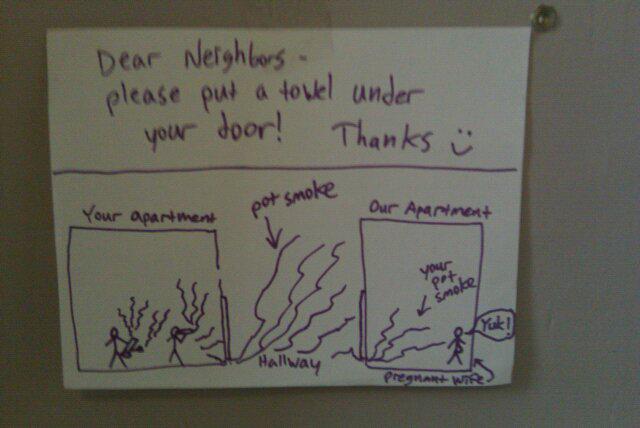 Dear Neighbors -
please put a towel under
your door! Thanks :)
Your apartment
pot smoke
Our Apartment
your
pot
smoke
Yuk!
Hallway
pregnant wife